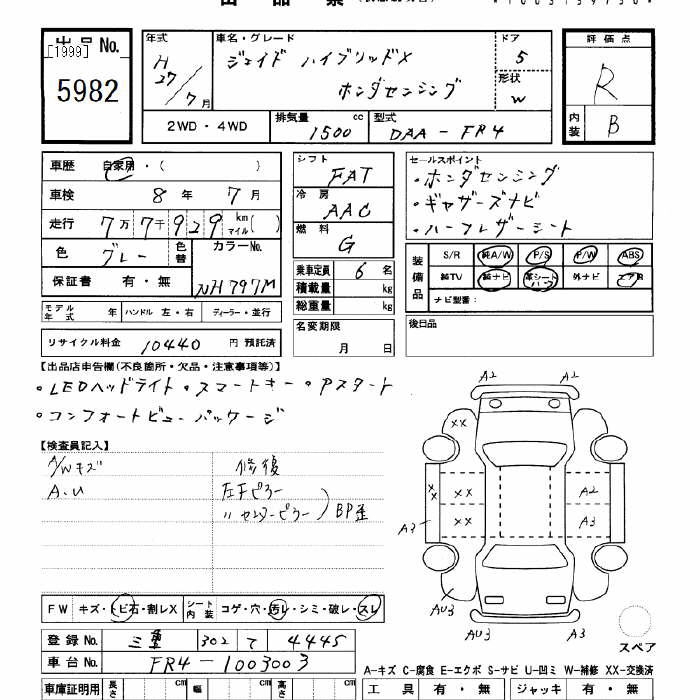 出品No.
[1999]
5982
年式
H
27/7月
車名・グレード
ジェイド ハイブリッドX
ホンダセンシング
ドア
5
形状
W
評価点
R
内装
B
2WD・4WD
排気量
1500 cc
型式
DAA-FR4
車歴 自家用・( )
車検 8年 7月
走行 7万7千929 km マイル( )
色 グレー 色替 カラーNo. NH797M
保証書 有・無
モデル年式 年 ハンドル 左・右 ディーラー・並行
リサイクル料金 10440 円 預託済
シフト
FAT
冷房
AAC
燃料
G
乗車定員 6 名
積載量 kg
総重量 kg
名変期限
月 日
セールスポイント
・ホンダセンシング
・ギャザーズナビ
・ハーフレザーシート
装備品
S/R 純A/W P/S P/W ABS
純TV 純ナビ 革シート 外ナビ エアB
ナビ型番:
後日品
【出品店申告欄(不良箇所・欠品・注意事項等)】
・LEDヘッドライト・スマートキー・Pスタート
・コンフォートビューパッケージ
【検査員記入】
A/Wキズ
A・U
修復
左Fピラー
〃センターピラー
BP歪
A2 A2
XX
XX XX A2
A3 XX A3
AU3 A3
AU3 A3
スペア
FW キズ・トビ石・割レX シート内装 コゲ・穴・汚レ・シミ・破レ・スレ
登録No. 三重 302 て 4445
車台No. FR4-1003003
A-キズ C-腐食 E-エクボ S-サビ U-凹ミ W-補修 XX-交換済
車庫証明用 長さ cm 幅 cm 高さ cm
工具 有・無 ジャッキ 有・無